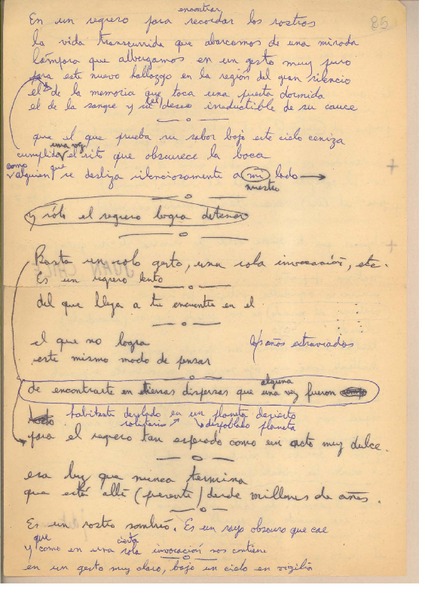 encontrar
85
Es un regreso para recordar los rostros
la vida transcurrida que abarcamos de una mirada
lámpara que albergamos en un gesto muy puro
para este nuevo hallazgo en la región del gran silencio
el de la memoria que toca una puerta dormida
el de la sangre y su deseo irreductible de su cauce
que el que prueba su sabor bajo este cielo ceniza
una vez
cumplida el rito que obscurece la boca
como
alguien se desliza silenciosamente a mi lado
nuestro
y sólo el regreso logra detener
Basta un solo gesto, una sola invocación, etc.
Es un regreso lento
del que llega a tu encuentro en el
el que no logra
este mismo modo de pensar
los años extraviados
alguna
de encontrarte en tierras dispersas que una vez fueron
habitante desolado en un planeta desierto
solitario despoblado planeta
para el regreso tan esperado como un acto muy dulce.
esa luz que nunca termina
que está allí (presente) desde millones de años.
Es un rostro sombrío. Es un rayo obscuro que cae
que cierta
y como en una sola invocación nos contiene
en un gesto muy claro, bajo un cielo en vigilia